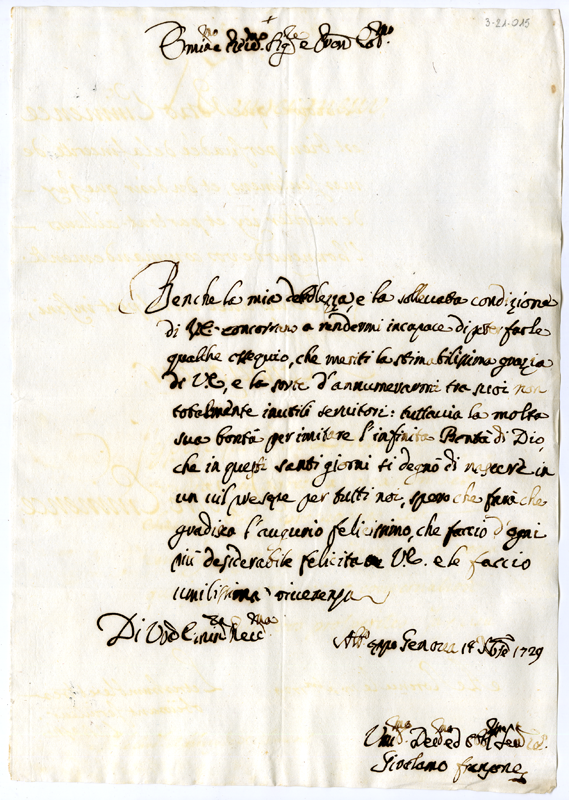 3-21-015
Em.mo e Rev.mo Sig.re e Pron Col.mo
Benche la mia debolezza, e la sollevata condizione
di V.E. concorrino a rendermi incapace di poter farle
qualche ossequio, che meriti la stimabilissima grazia
di V.E., e la sorte d'annumerarmi tra suoi non
totalmente inutili servitori: tuttavia la molta
sua bontà per imitare l'infinita Bontà di Dio,
che in questi santi giorni si degnò di nascere in
un vil presepe per tutti noi, spero che farà che
gradisca l'augurio felicissimo, che faccio d'ogni
più desiderabile felicità a V.E. e le faccio
umilissima riverenza
Di Vra Em.za Rev.ma
Genova 14 Xbre 1729
Um.mo Dev.mo ed Obl.mo Serv.re
Girolamo Franzone